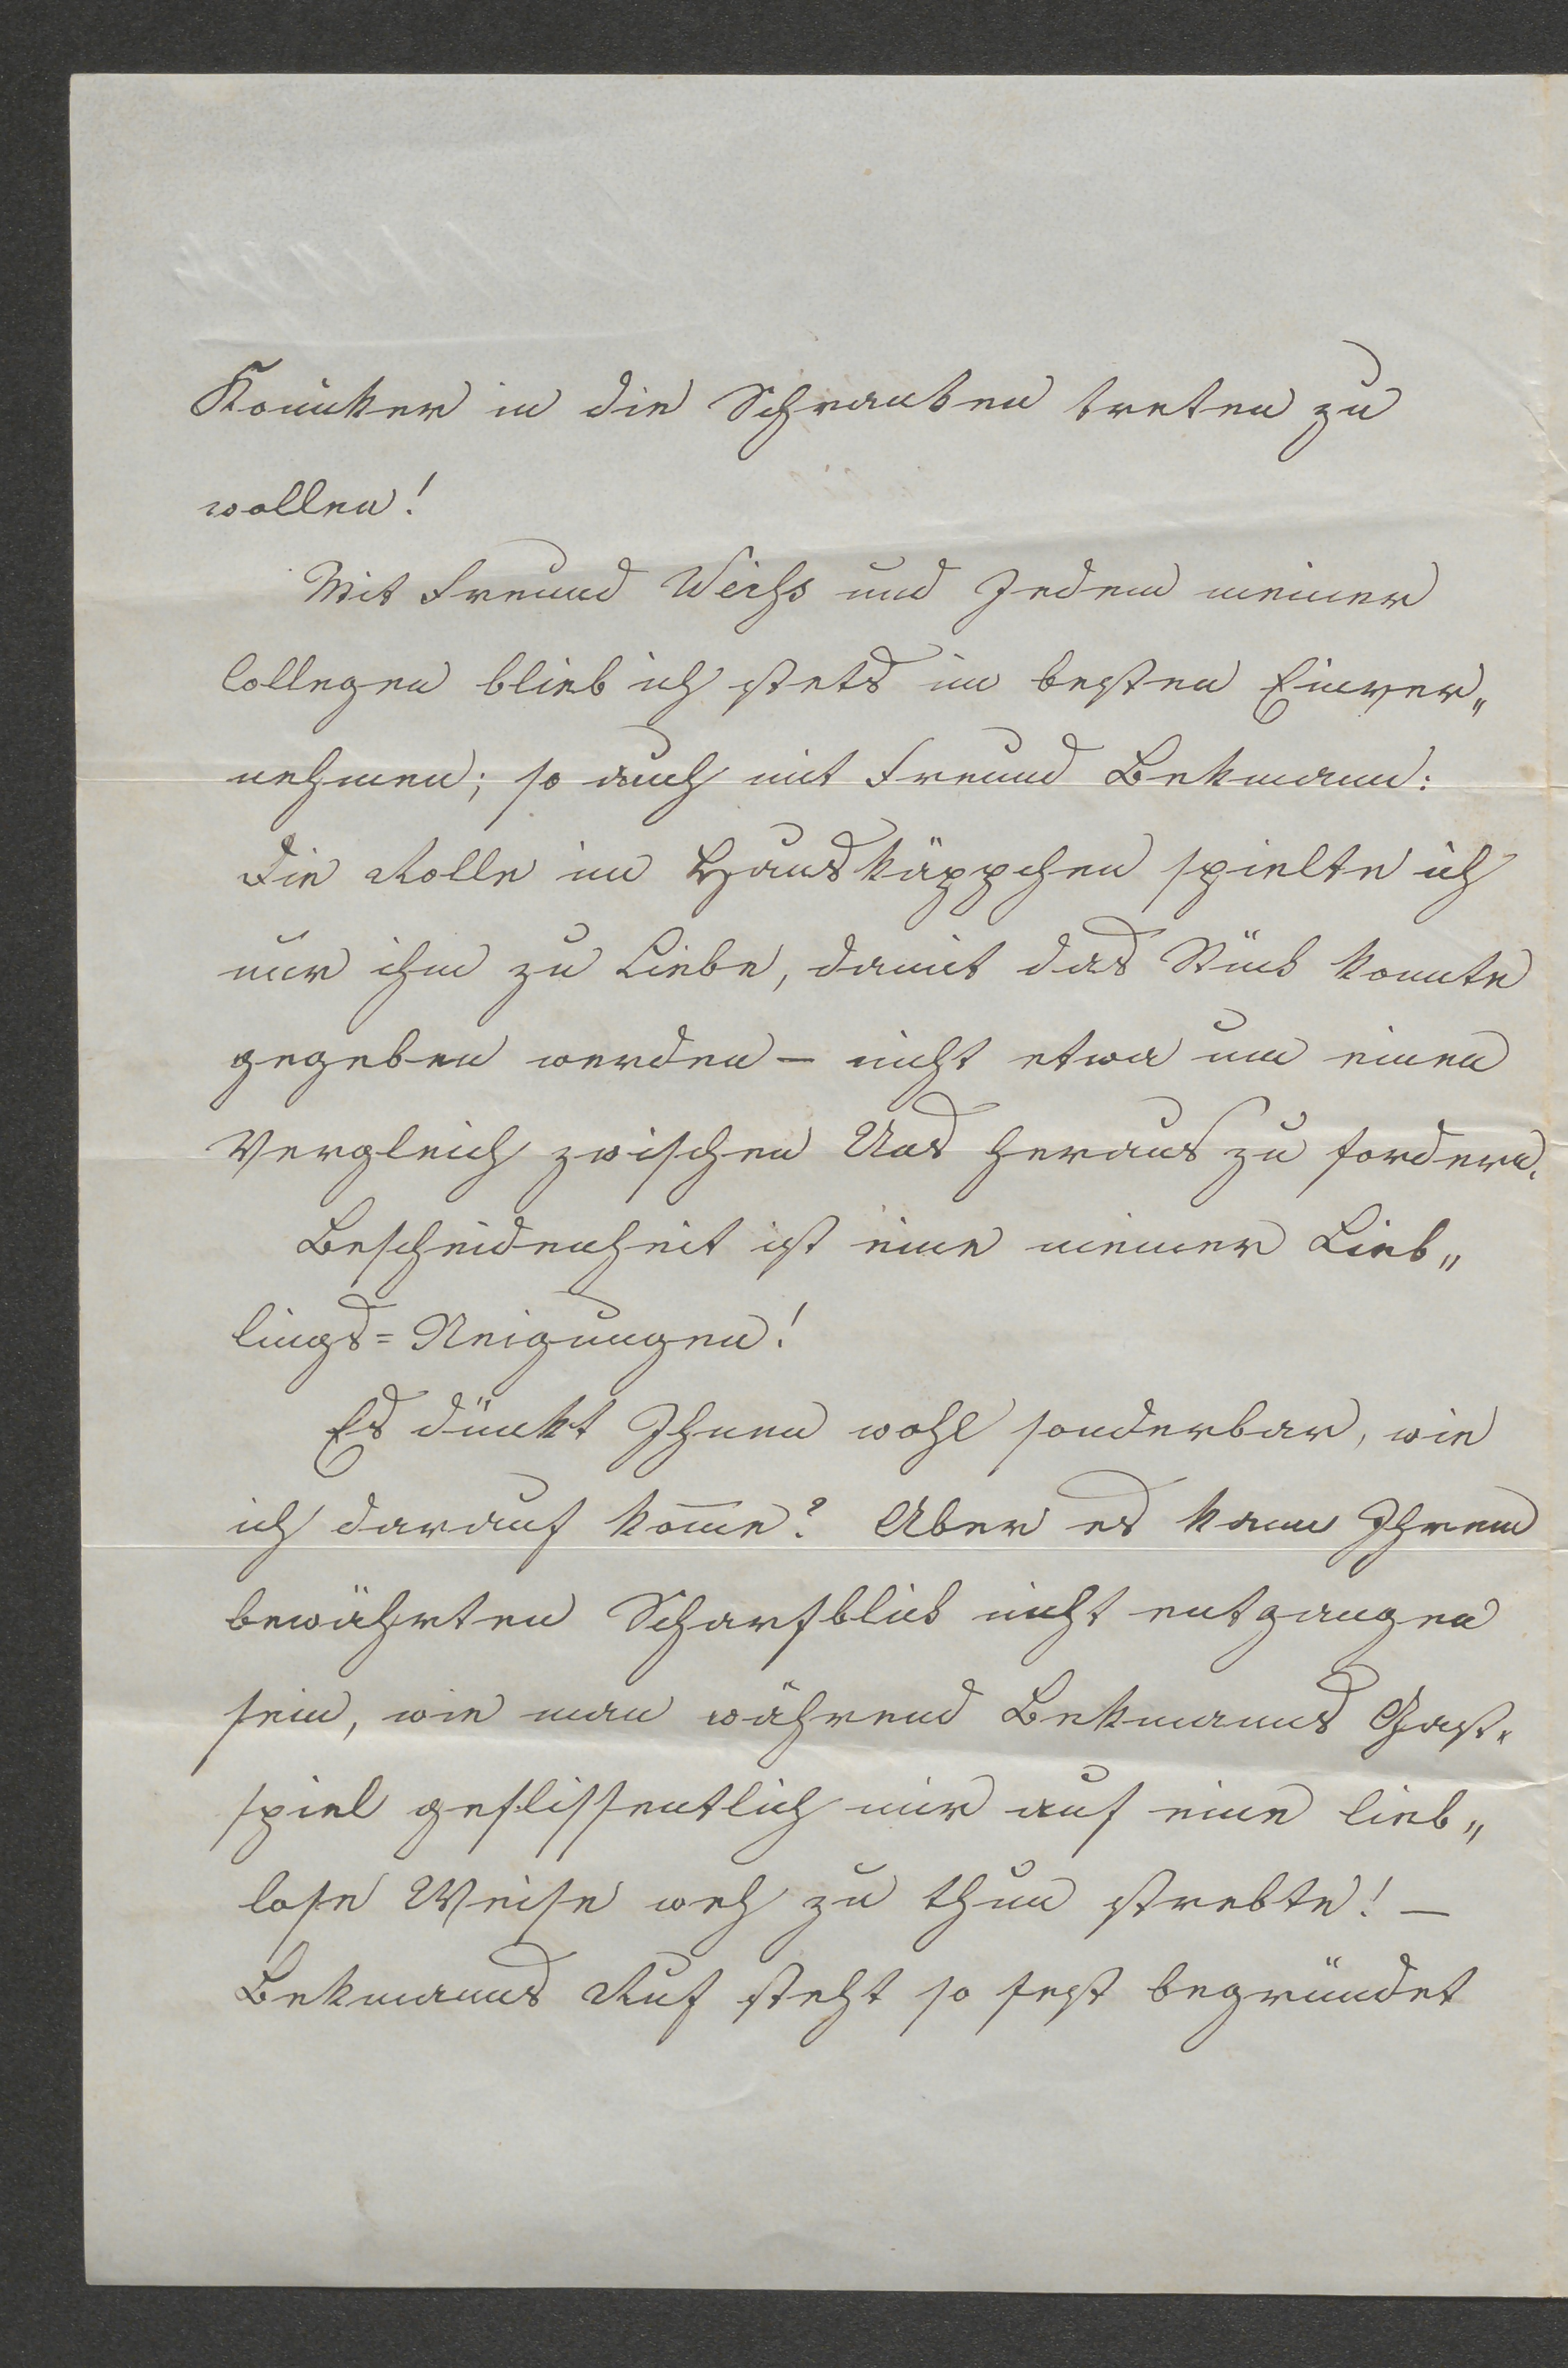 Komiker in die Schranken treten zu
wollen!
Mit Freund Weihs und Jedem meiner
Collegen blieb ich stets im besten Einver„
nehmen; so auch mit Freund Bekmann:
Die Rolle im Hauskäppchen spielte ich
nur ihm zu Liebe, damit das Stück konnte
gegeben werden – nicht etwa um einen
Vergleich zwischen Uns heraus zu fordern.
Bescheidenheit ist eine meiner Lieb„
lings=Neigungen!
Es dünkt Ihnen wohl sonderbar, wie
ich darauf kom̅e? Aber es kann Ihrem
bewährten Scharfblick nicht entgangen
sein, wie man während Bekmanns Gast„
spiel geflissentlich mir auf eine lieb„
lose Weise weh zu thun strebte! –
Bekmanns Ruf steht so fest begründet